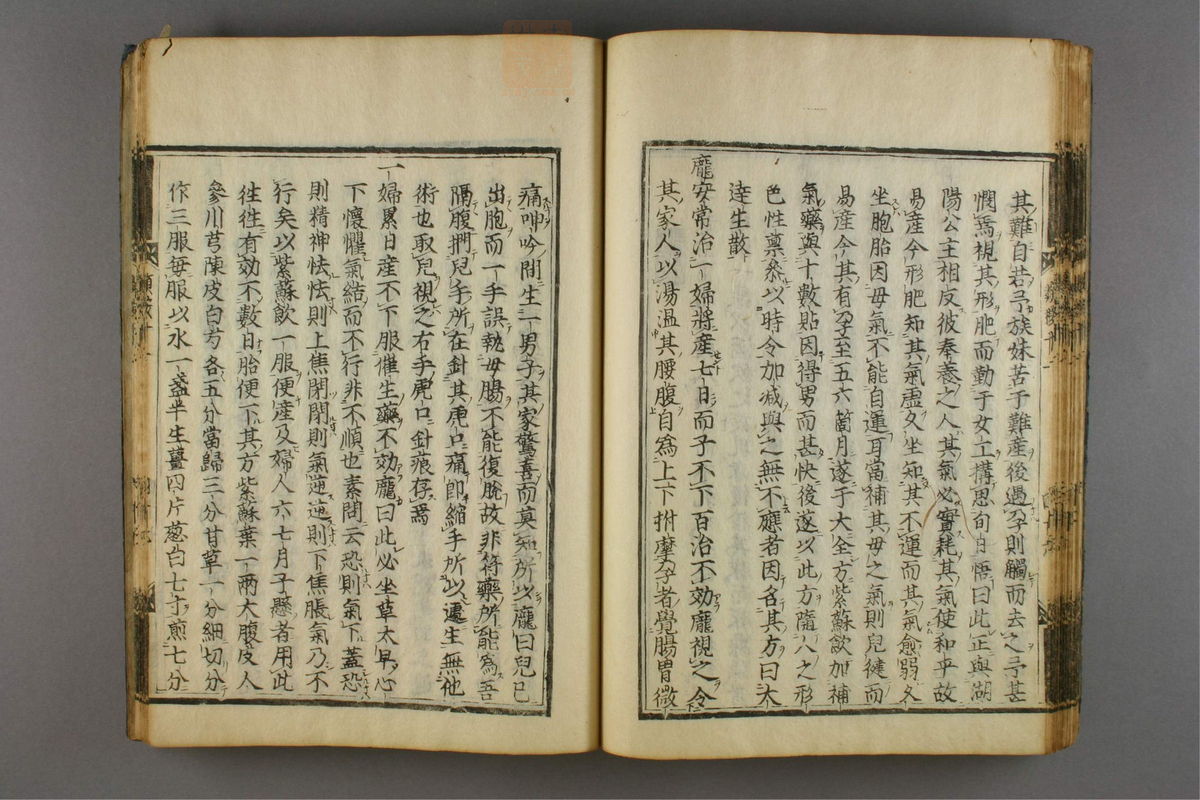 其難自若予族妹苦于難産後遇孕則觸而去之予甚
憫焉視其形肥而勤于女工搆思旬日悟曰此正與湖
陽公主相反彼奉養之人其氣必實耗其氣使和平故
易産今形肥知其氣虚久坐知其不運而其氣愈弱久
坐胞胎因母氣不能自運耳當補其母之氣則兒健而
易産今其有孕至五六箇月遂于大全方紫蘇飲加補
氣藥與十數貼因得男而甚快後遂以此方隨人之形
色性禀叅以時令加减與之無不應者因名其方曰大
逹生散
龐安常治一婦將産七日而子不下百治不効龐視之令
其家人以湯温其腰腹自爲上下拊摩孕者覺腸胃微
痛呻吟間生一男子其家驚喜而莫知所以龐曰兒已
出胞而一手誤執母腸不能復脫故非符藥所能爲吾
隔腹捫兒手所在針其虎口痛即縮手所以遽生無他
術也取兒視之右手虎口針痕存焉
一婦累日産不下服催生藥不効龐曰此必坐草太早心
下懷懼氣結而不行非不順也素問云恐則氣下蓋恐
則精神怯怯則上焦閉閉則氣逆逆則下焦脹氣乃不
行矣以紫蘇飲一服便産及婦人六七月子懸者用此
徃徃有効不數日胎便下其方紫蘇葉一兩大腹皮人
參川芎陳皮白芍各五分當歸三分甘草一分細切分
作三服每服以水一盞半生薑四片葱白七寸煎七分